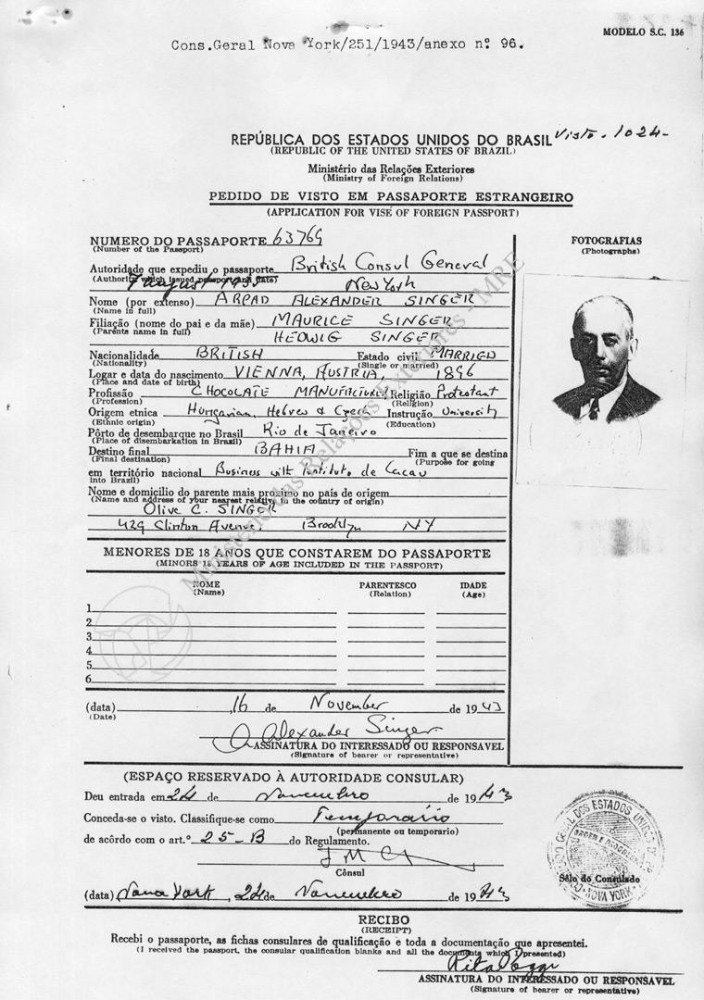 MODELO S.C. 136
Cons.Geral Nova York/251/1943/anexo nº 96.
Visto. 1024-
REPÚBLICA DOS ESTADOS UNIDOS DO BRASIL
(REPUBLIC OF THE UNITED STATES OF BRAZIL)
Ministério das Relações Exteriores
(Ministry of Foreign Relations)
PEDIDO DE VISTO EM PASSAPORTE ESTRANGEIRO
(APPLICATION FOR VISE OF FOREIGN PASSPORT)
NUMERO DO PASSAPORTE 63769
(Number of the Passport)
FOTOGRAFIAS
(Photographs)
Autoridade que expediu o passaporte British Consul General
(Authority which issued passport and date)
New York
Nome (por extenso) ARPAD ALEXANDER SINGER
(Name in full)
Filiação (nome do pai e da mãe) MAURICE SINGER
(Parents name in full)
HEDWIG SINGER
Nacionalidade BRITISH Estado civil MARRIED
(Nationality) (Single or married)
Logar e data do nascimento VIENNA, AUSTRIA, 1896
(Place and date of birth)
Profissão CHOCOLATE MANUFACTURER Religião Protestant
(Profession) (Religion)
Origem etnica Hungarian, Hebrew & Czech Instrução University
(Ethnic origin) (Education)
Pôrto de desembarque no Brasil Rio de Janeiro
(Place of disembarkation in Brazil)
Destino final BAHIA Fim a que se destina
(Final destination) (Purpose for going
em território nacional Business with Instituto de Cacau
into Brazil)
Nome e domicilio do parente mais proximo no pais de origem
(Name and address of your nearest relative in the country of origin)
Olive C. SINGER
429 Clinton Avenue. Brooklyn NY
MENORES DE 18 ANOS QUE CONSTAREM DO PASSAPORTE
(MINORS 18 YEARS OF AGE INCLUDED IN THE PASSPORT)
NOME PARENTESCO IDADE
(Name) (Relation) (Age)
1
2
3
4
5
6
(data) 16 de November de 1943
(Date)
Alexander Singer
ASSINATURA DO INTERESSADO OU RESPONSAVEL
(Signature of bearer or representative)
(ESPAÇO RESERVADO À AUTORIDADE CONSULAR)
Deu entrada em 24 de Novembro de 1943
Conceda-se o visto. Classifique-se como Temporario
(permanente ou temporario)
de acôrdo com o art.º 25-B do Regulamento.
Cônsul
Sêlo do Consulado
NOVA YORK
(data) Nova York, 24 de Novembro de 1943
RECIBO
(RECEIPT)
Recebi o passaporte, as fichas consulares de qualificação e toda a documentação que apresentei.
(I received the passport, the consular qualification blanks and all the documents which I presented)
ASSINATURA DO INTERESSADO OU RESPONSAVEL
(Signature of bearer or representative)